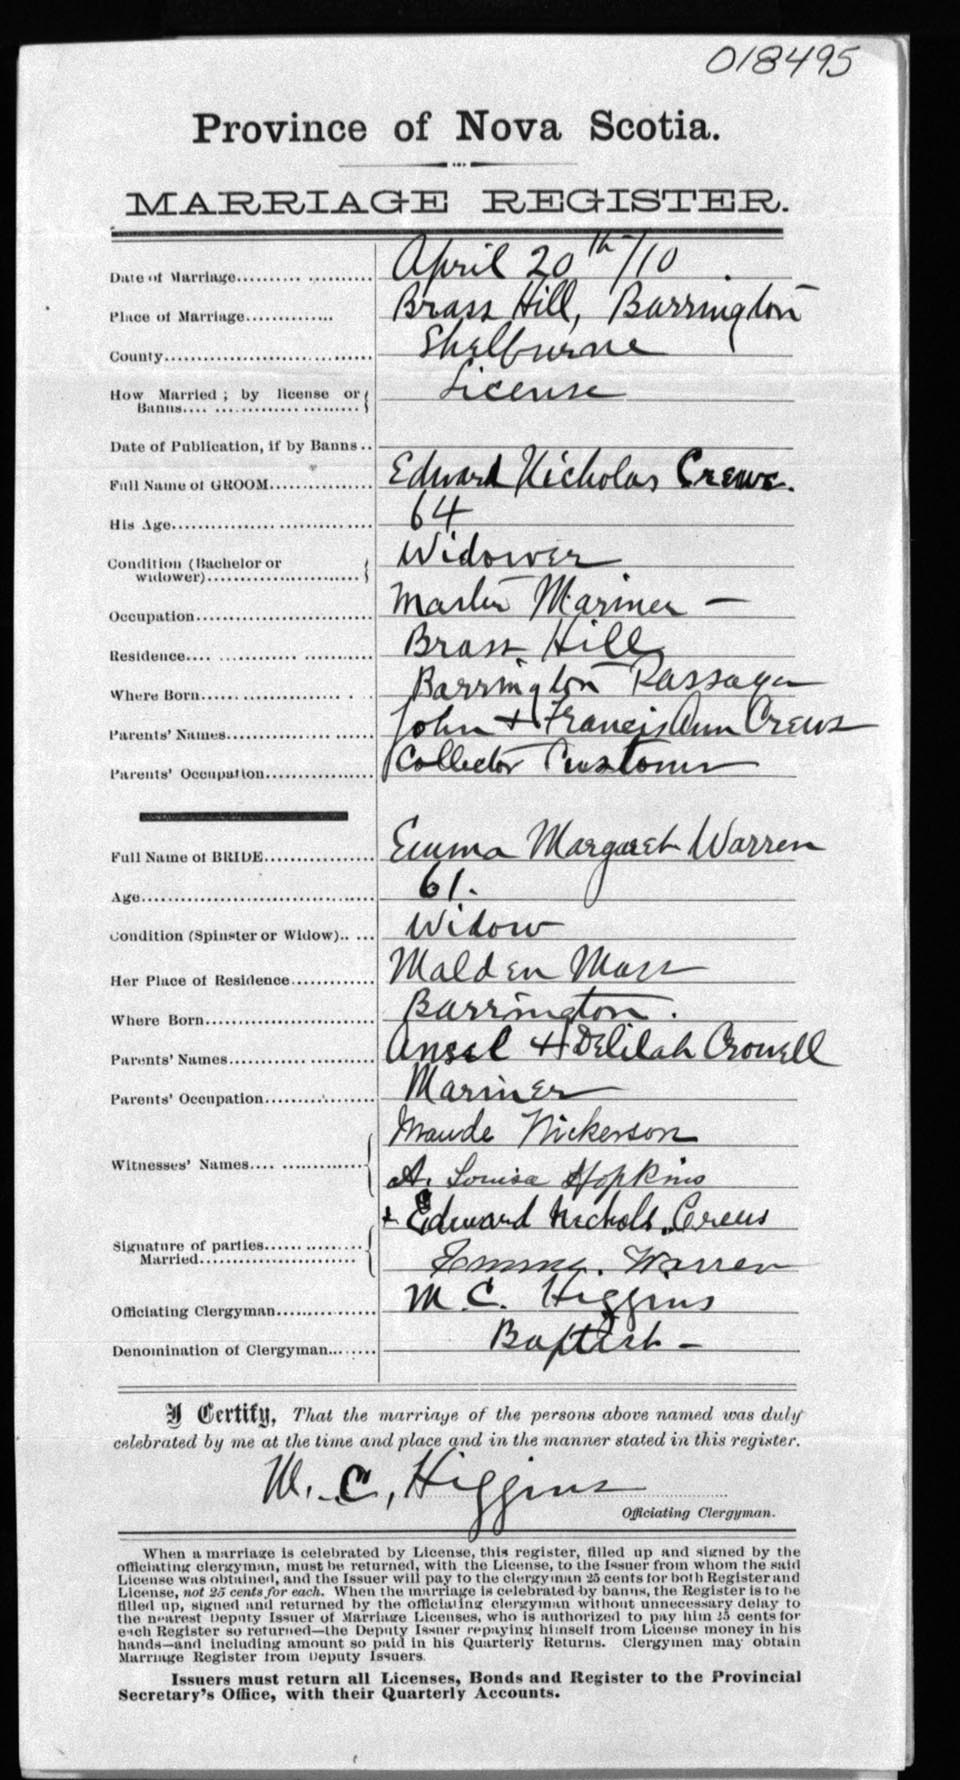 018495
Province of Nova Scotia.
MARRIAGE REGISTER.
Date of Marriage.................... April 20th/10
Place of Marriage............. Brass Hill, Barrington
County............................... Shelburne
How Married; by license or Banns.... License
Date of Publication, if by Banns..
Full Name of GROOM............... Edward Nicholas Crews.
His Age............................. 64
Condition (Bachelor or widower)....................... Widower
Occupation.......................... Master Mariner —
Residence.... Brass Hill
Where Born...... Barrington Passage
Parents' Names............ John + Francis Ann Crews
Parents' Occupation................ Collector Customs
Full Name of BRIDE................ Emma Margaret Warren
Age................................... 61.
Condition (Spinster or Widow).. ... Widow
Her Place of Residence............ Malden Mass
Where Born......................... Barrington.
Parents' Names............ Ansel + Delilah Crowell
Parents' Occupation................ Mariner
Witnesses' Names.... Maude Nickerson
A. Louisa Hopkins
Signature of parties Married...... + Edward Nichols. Crews
Emma. Warren
Officiating Clergyman.............. M. C. Higgins
Denomination of Clergyman........ Baptist —
I Certify, That the marriage of the persons above named was duly
celebrated by me at the time and place and in the manner stated in this register.
M. C. Higgins
Officiating Clergyman.
When a marriage is celebrated by License, this register, filled up and signed by the
officiating clergyman, must be returned, with the License, to the Issuer from whom the said
License was obtained, and the Issuer will pay to the clergyman 25 cents for both Register and
License, not 25 cents for each. When the marriage is celebrated by banns, the Register is to be
filled up, signed and returned by the officiating clergyman without unnecessary delay to
the nearest Deputy Issuer of Marriage Licenses, who is authorized to pay him 25 cents for
each Register so returned—the Deputy Issuer repaying himself from License money in his
hands—and including amount so paid in his Quarterly Returns. Clergymen may obtain
Marriage Register from Deputy Issuers.
Issuers must return all Licenses, Bonds and Register to the Provincial
Secretary's Office, with their Quarterly Accounts.